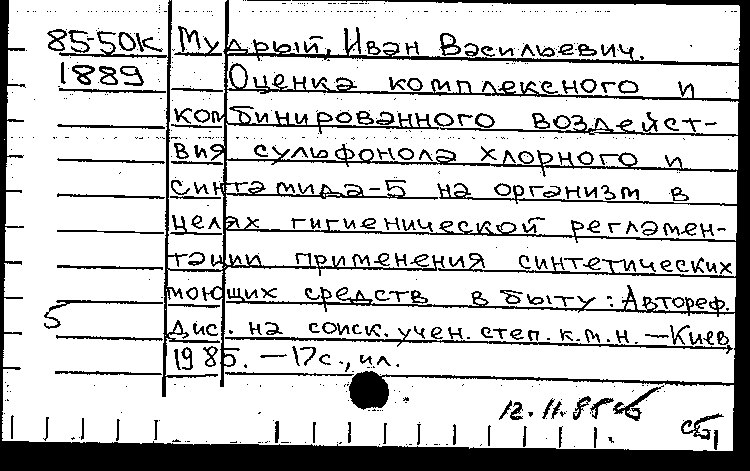 85-50К Мудрый, Иван Васильевич.
1889 Оценка комплексного и
комбинированного воздейст-
вия сульфонола хлорного и
синтамида-5 на организм в
целях гигиенической регламен-
тации применения синтетических
моющих средств в быту: Автореф.
5 дис. на соиск. учен. степ. к.м.н. — Киев,
1985. — 17с., ил.
12.11.85